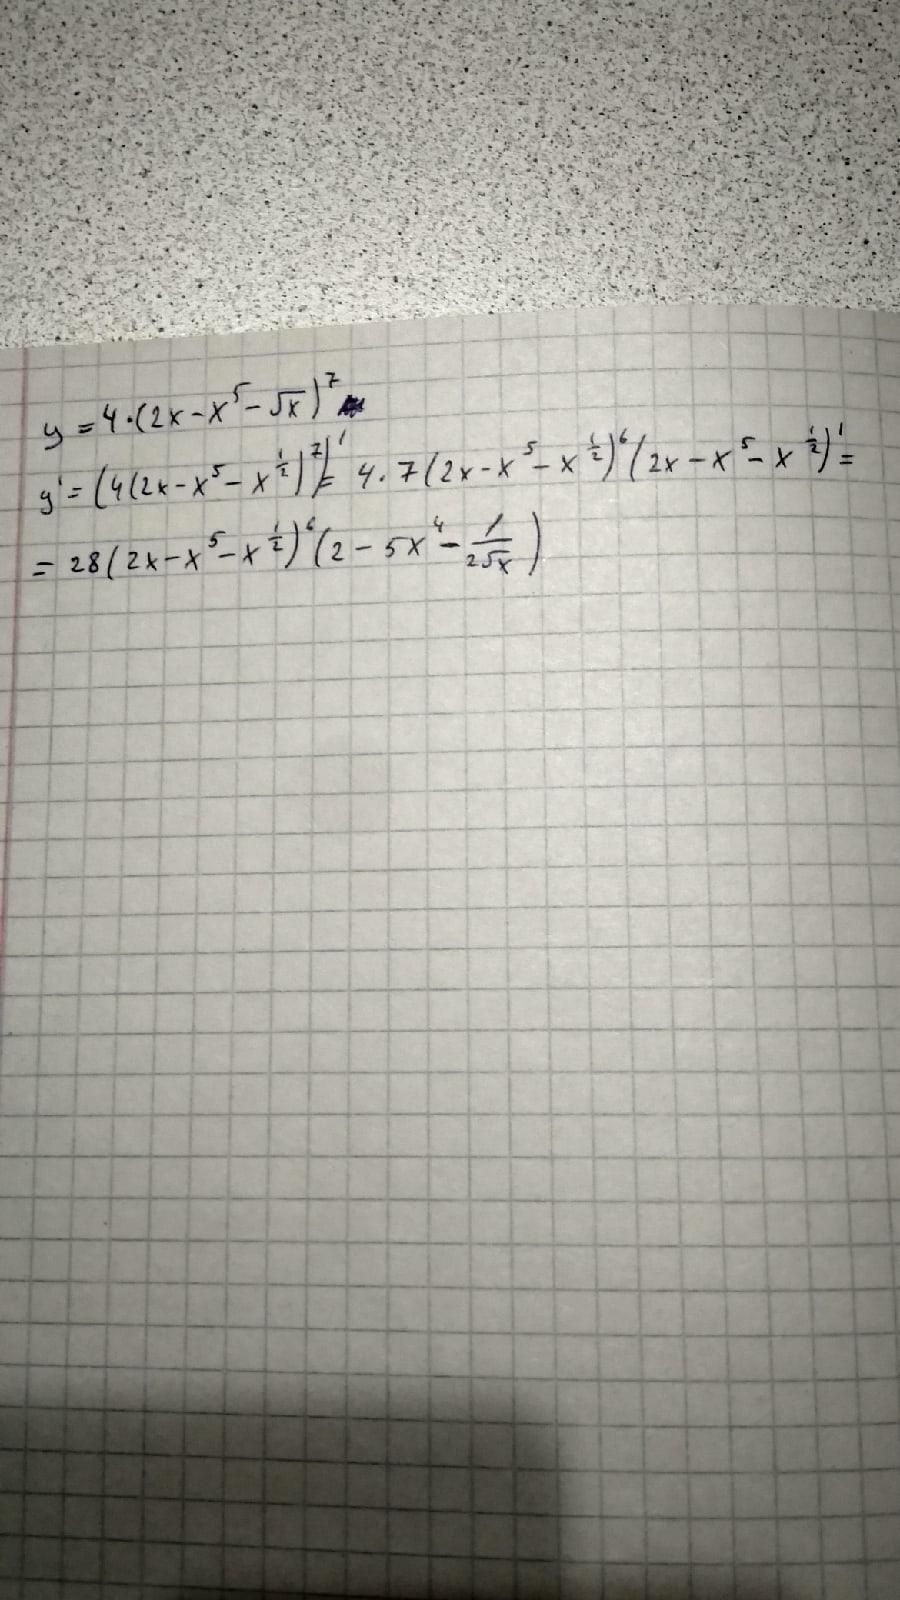 y = 4·(2x-x⁵-√x)⁷
y' = (4(2x-x⁵-x^½)⁷)' = 4·7(2x-x⁵-x^½)⁶(2x-x⁵-x^½)' =
= 28(2x-x⁵-x^½)⁶(2-5x⁴-1/(2√x))